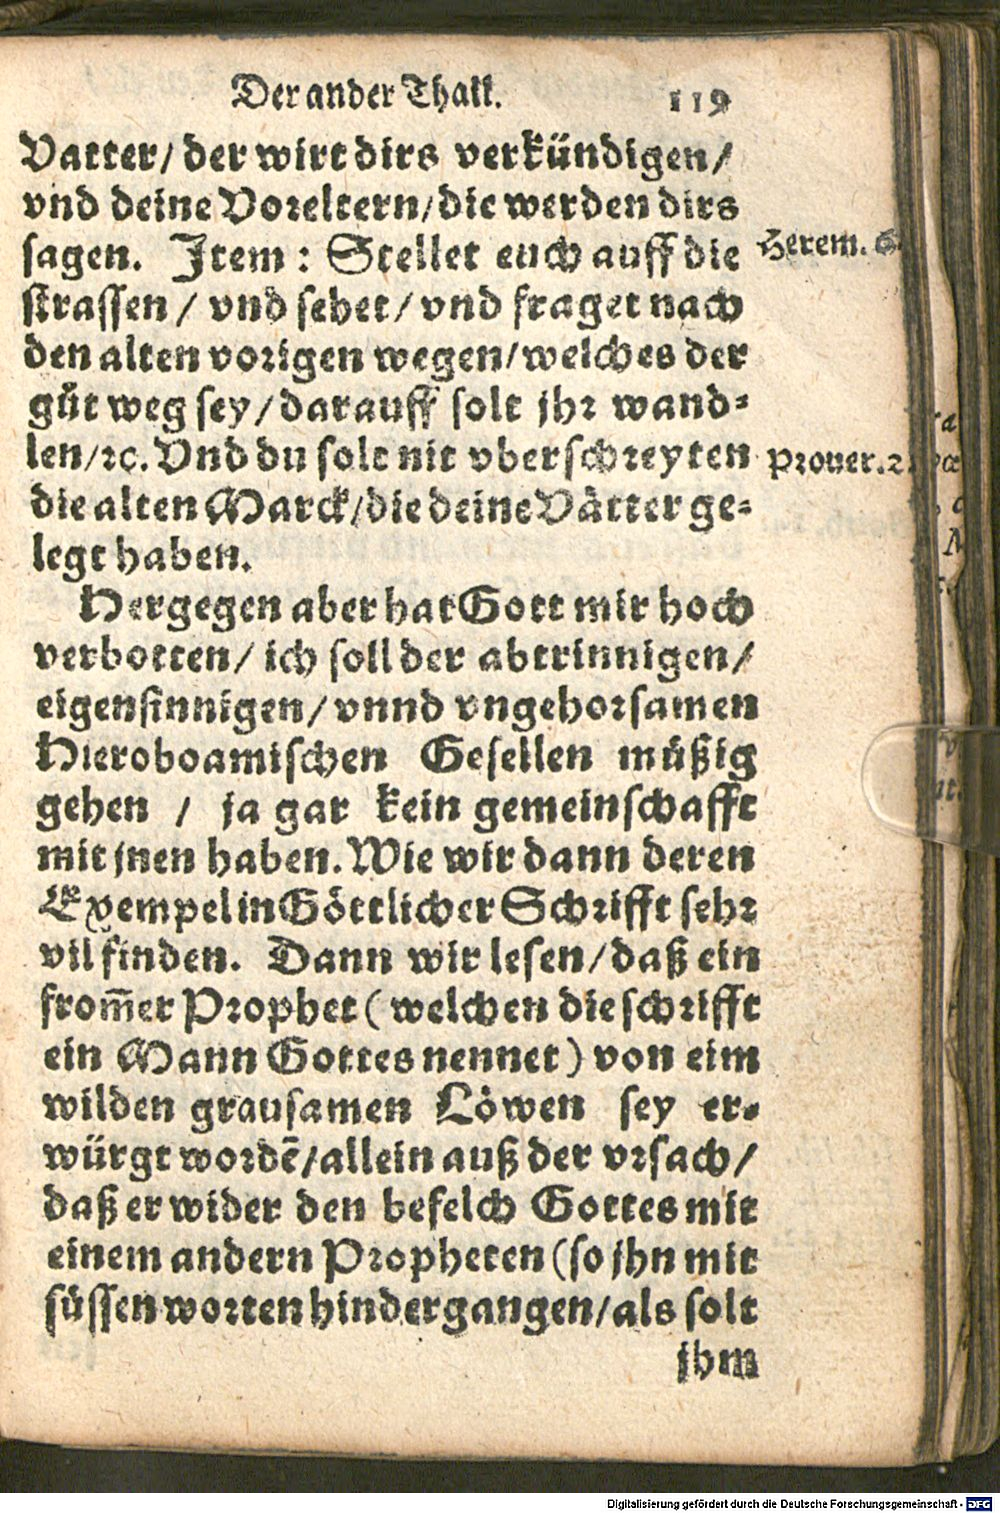 Der ander Thail. 119
Vatter/ der wirt dirs verkündigen/
vnd deine Voreltern/die werden dirs
sagen. Item : Stellet euch auff die
Herem. 6.
strassen / vnd sehet/ vnd fraget nach
den alten vorigen wegen/welches der
gůt weg sey/darauff solt jhr wand⸗
len/ꝛc. Vnd du solt nit vberschreyten
Prouer. 2
die alten Marck/die deine Vätter ge⸗
legt haben.
Hergegen aber hat Gott mir hoch
verbotten/ ich soll der abtrinnigen/
eigensinnigen/ vnnd vngehorsamen
Hieroboamischen Gesellen müßig
gehen / ja gar kein gemeinschafft
mit jnen haben. Wie wir dann deren
Exempel in Göttlicher Schrifft sehr
vil finden. Dann wir lesen/daß ein
from̃er Prophet ( welchen die schrifft
ein Mann Gottes nennet ) von eim
wilden grausamen Löwen sey er⸗
würgt wordẽ/allein auß der vrsach/
daß er wider den befelch Gottes mit
einem andern Propheten (so jhn mit
süssen worten hindergangen/als solt
jhm
Digitalisierung gefördert durch die Deutsche Forschungsgemeinschaft - DFG